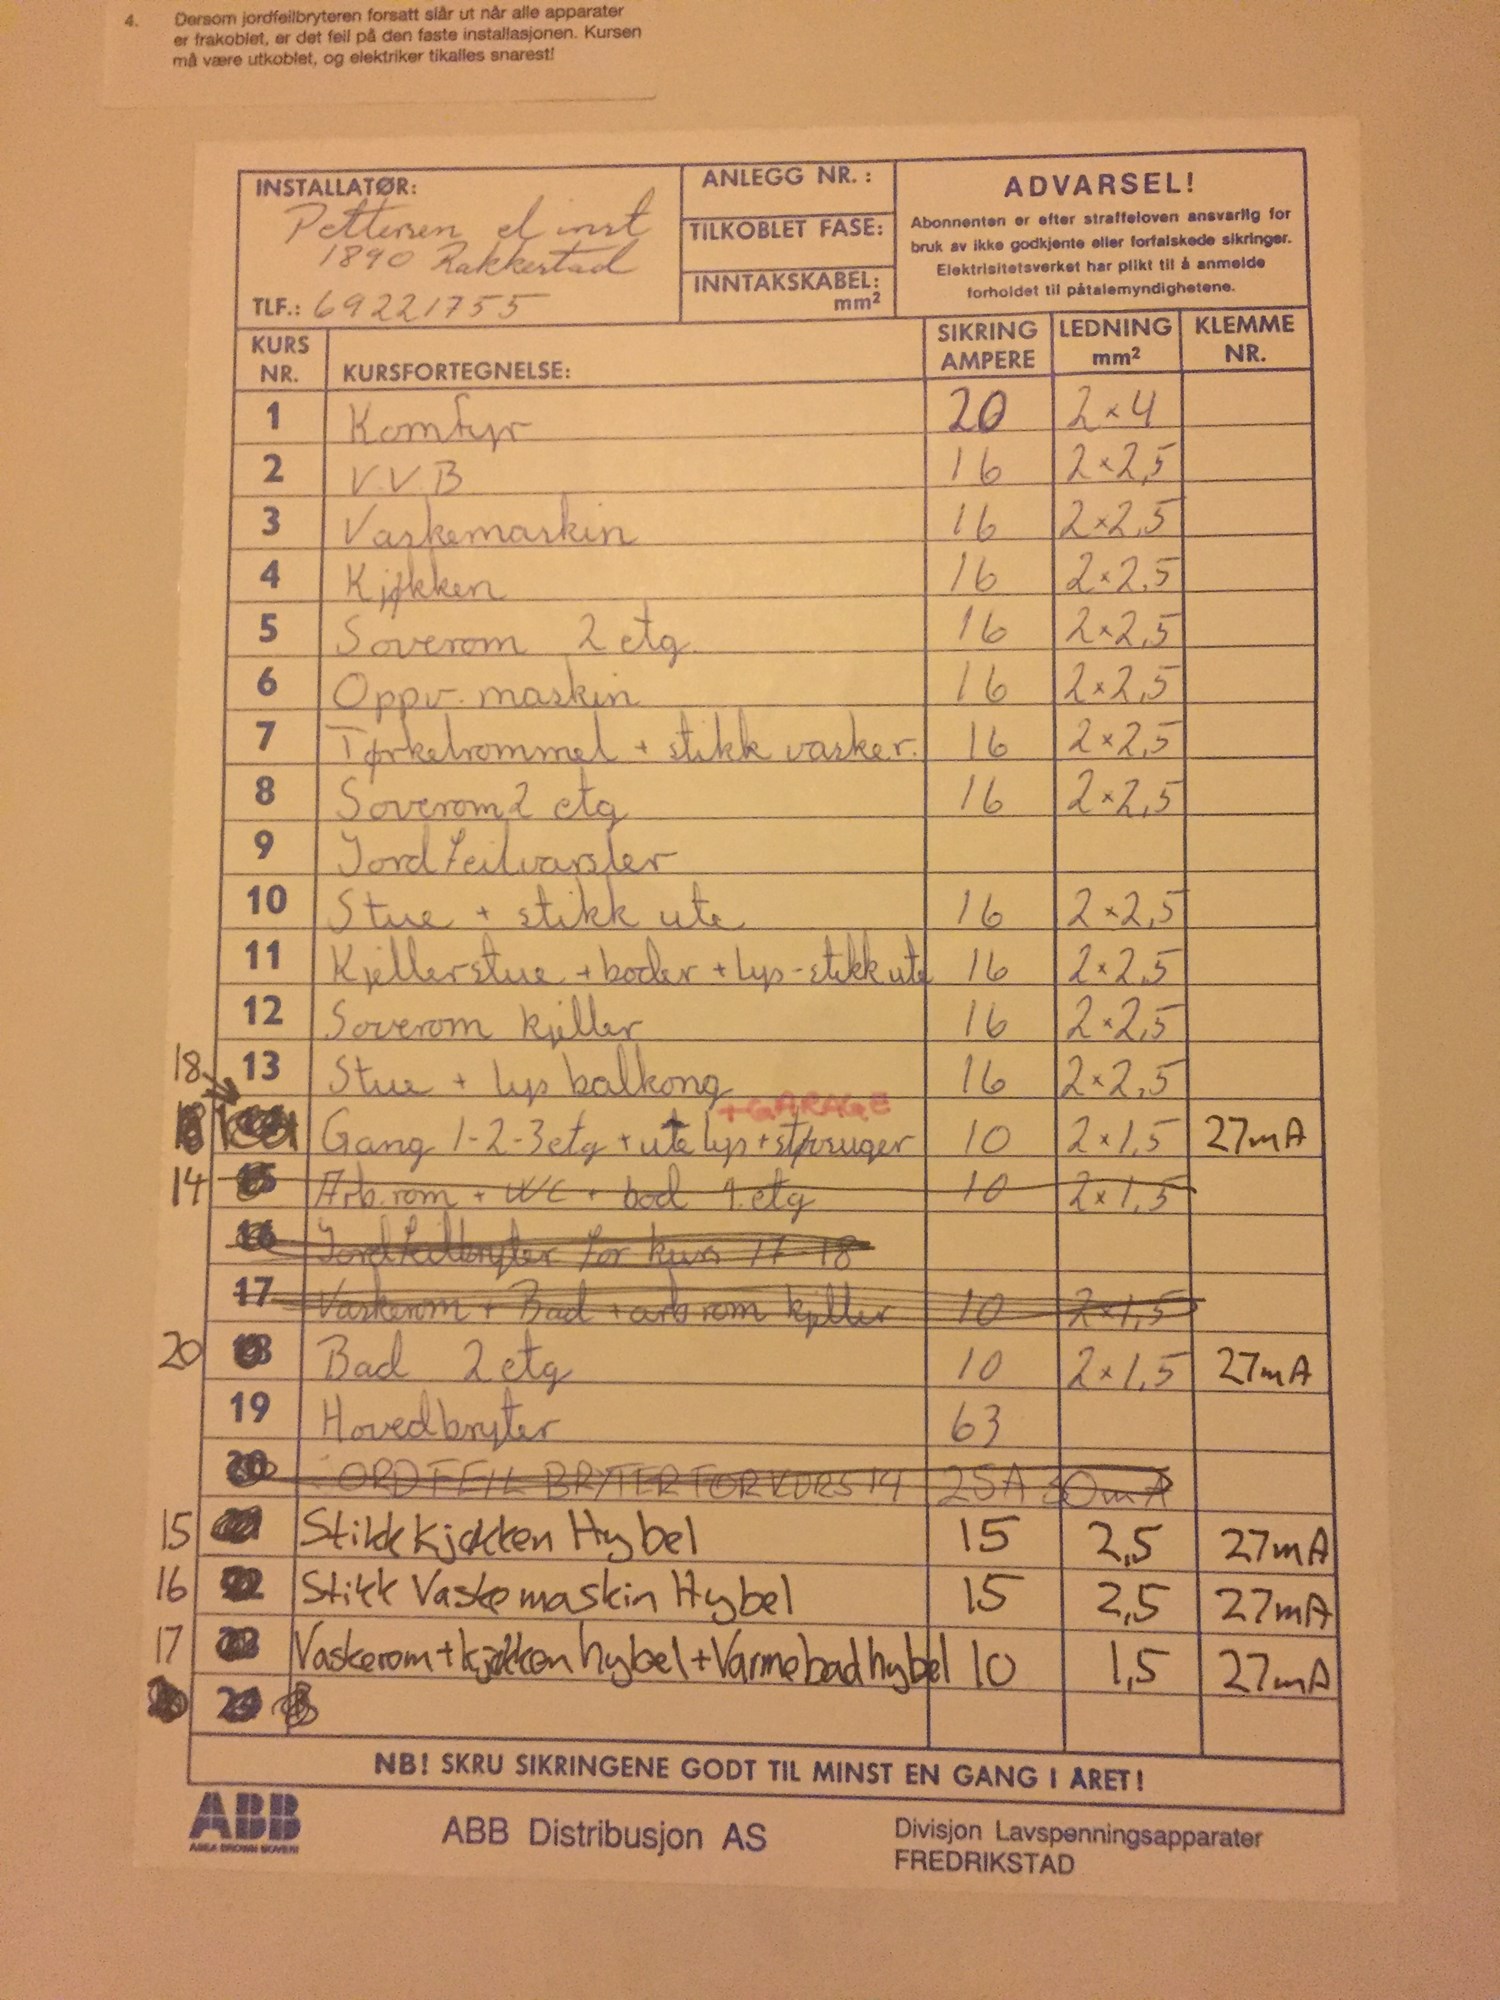 4. Dersom jordfeilbryteren forsatt slår ut når alle apparater
er frakoblet, er det feil på den faste installasjonen. Kursen
må være utkoblet, og elektriker tikalles snarest!
INSTALLATØR:
Pettersen el inst
1890 Rakkestad
TLF.: 69221755
ANLEGG NR. :
TILKOBLET FASE:
INNTAKSKABEL:
mm²
ADVARSEL!
Abonnenten er efter straffeloven ansvarlig for
bruk av ikke godkjente eller forfalskede sikringer.
Elektrisitetsverket har plikt til å anmelde
forholdet til påtalemyndighetene.
KURS NR. KURSFORTEGNELSE: SIKRING AMPERE LEDNING mm² KLEMME NR.
1 Komfyr 20 2×4
2 V.V.B 16 2×2,5
3 Vaskemaskin 16 2×2,5
4 Kjøkken 16 2×2,5
5 Soverom 2 etg. 16 2×2,5
6 Oppv. maskin 16 2×2,5
7 Tørketrommel + stikk vasker. 16 2×2,5
8 Soverom 2 etg 16 2×2,5
9 Jordfeilvarsler
10 Stue + stikk ute 16 2×2,5
11 Kjellerstue + boder + lys-stikk ute 16 2×2,5
12 Soverom kjeller 16 2×2,5
13 Stue + lys balkong 16 2×2,5
+GARAGE
18 Gang 1-2-3 etg + ute lys + 10 2×1,5 27mA
14 15 Arb.rom + WC + bod 1. etg 10 2×1,5
16 Jordfeilbryter for kurs 17-18
17 Vaskerom + Bad + arb rom kjeller 10 2×1,5
20 18 Bad 2 etg 10 2×1,5 27mA
19 Hovedbryter 63
20 JORDFEIL BRYTER FOR KURS 14 25A 30mA
15 21 Stikk kjøkken Hybel 15 2,5 27mA
16 22 Stikk Vaskemaskin Hybel 15 2,5 27mA
17 23 Vaskerom + kjøkken hybel + Varme bad hybel 10 1,5 27mA
24
NB! SKRU SIKRINGENE GODT TIL MINST EN GANG I ÅRET!
ABB
ASEA BROWN BOVERI
ABB Distribusjon AS
Divisjon Lavspenningsapparater
FREDRIKSTAD